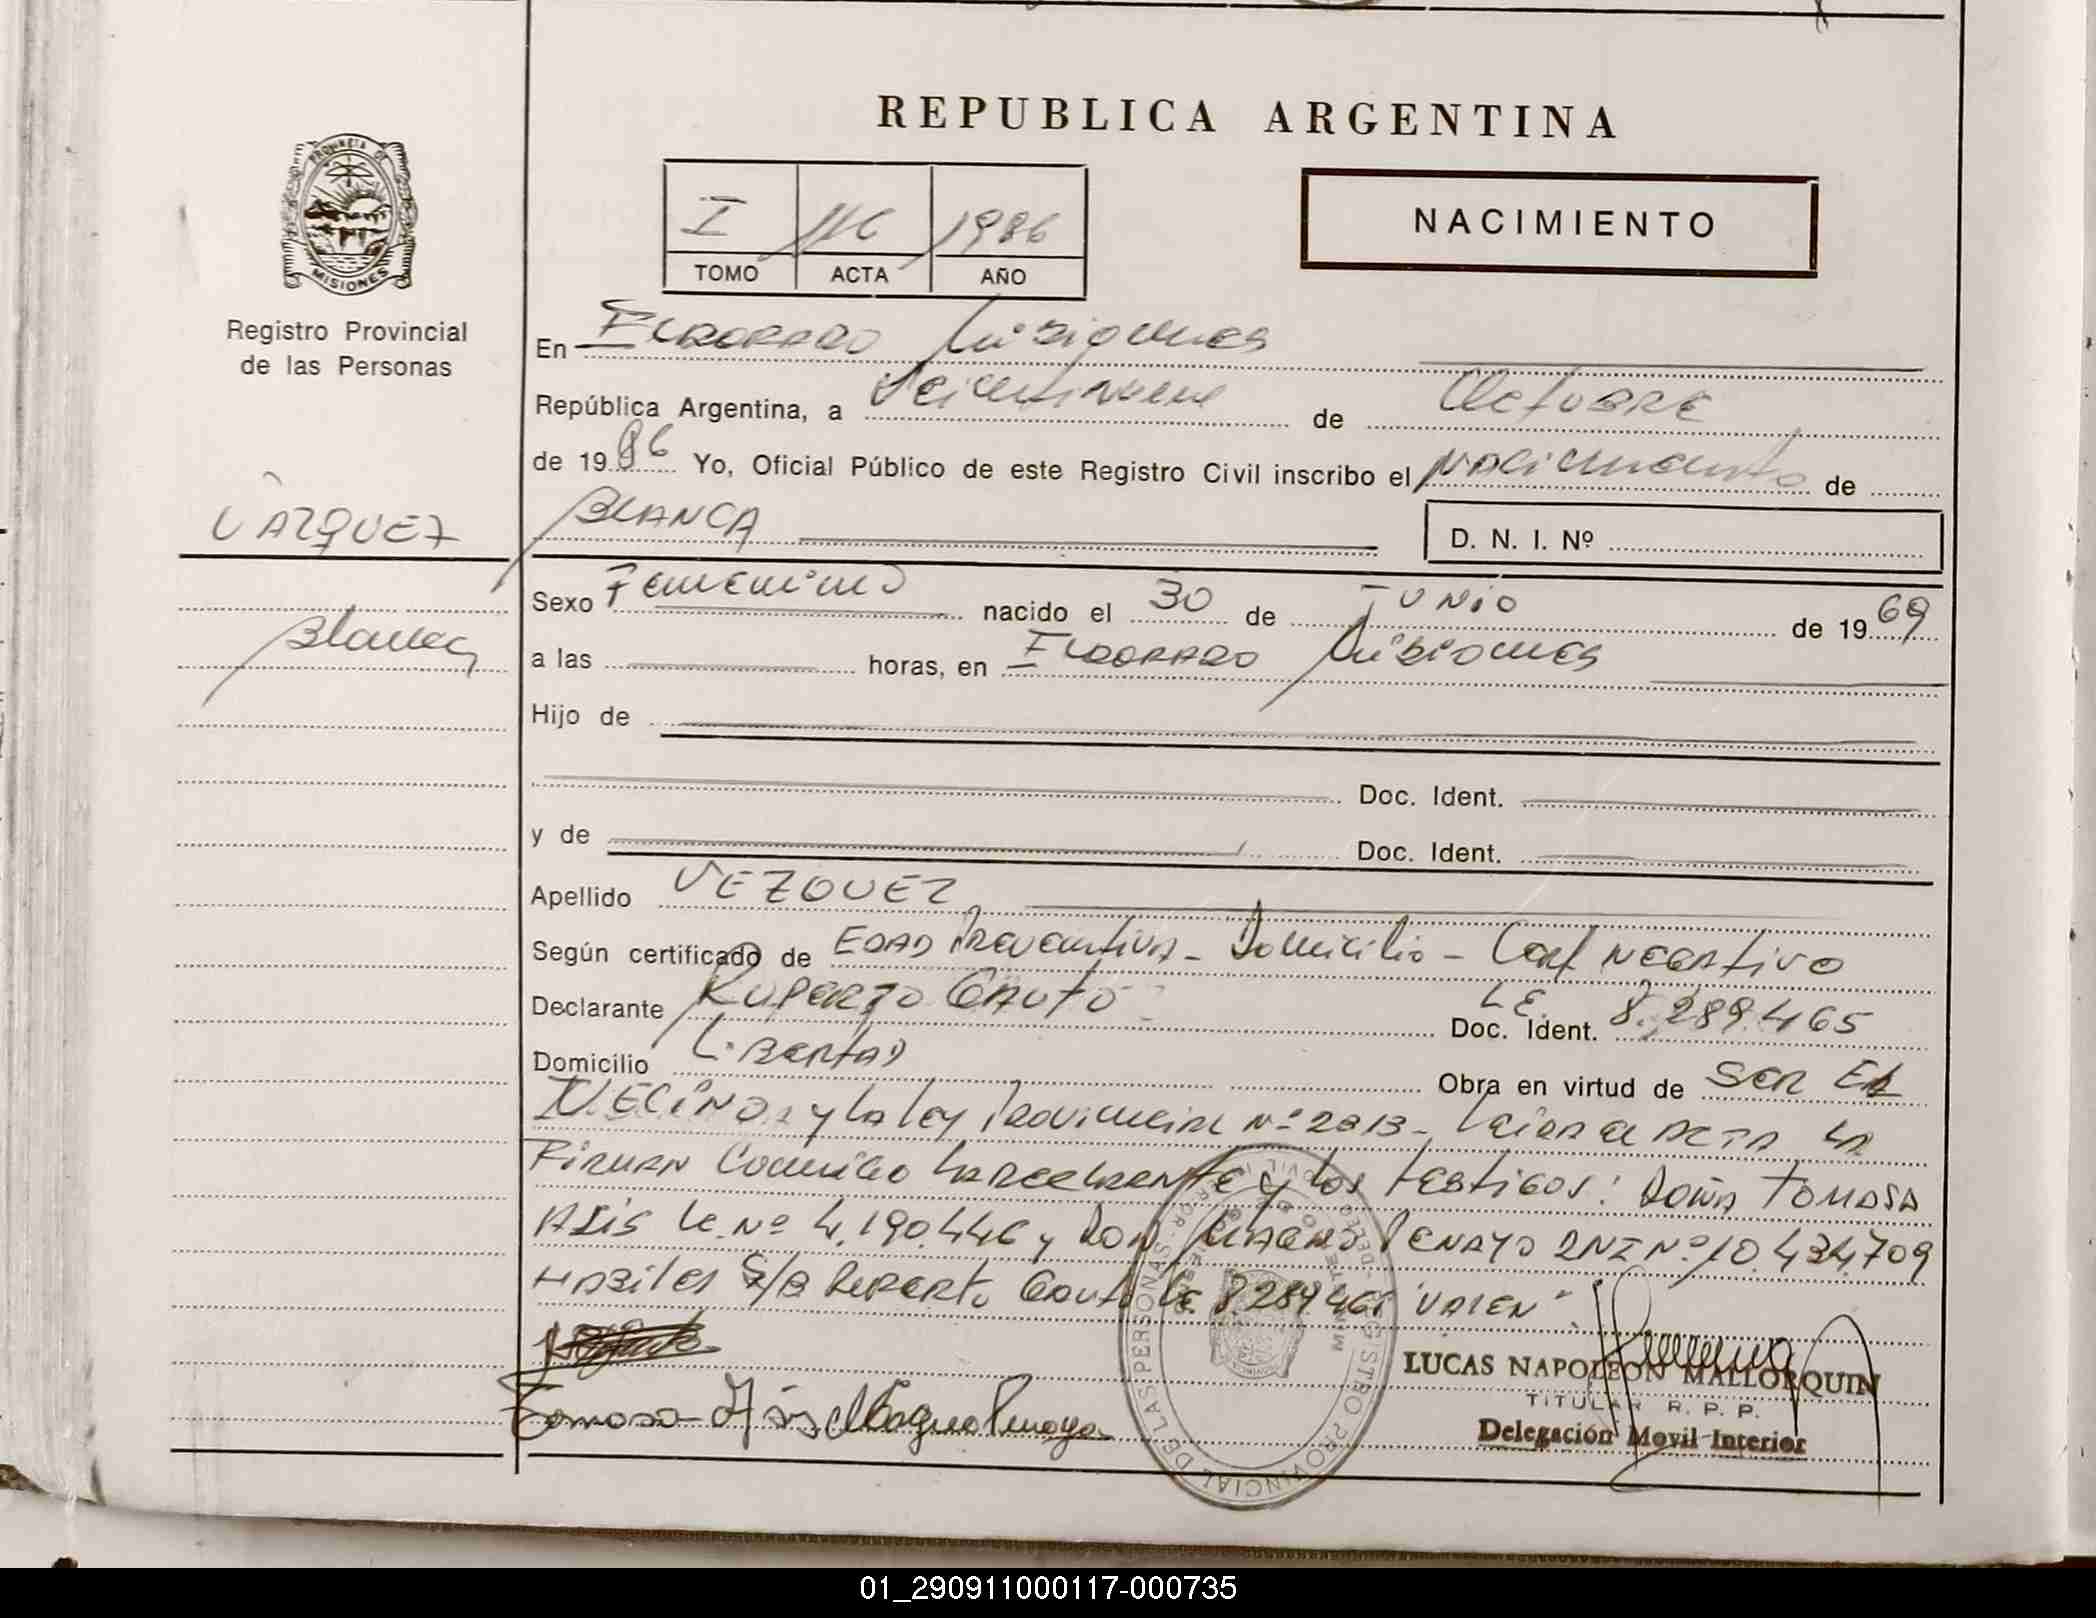 REPUBLICA ARGENTINA
PROVINCIA DE
MISIONES
Registro Provincial
de las Personas
I 116 1986
TOMO ACTA AÑO
NACIMIENTO
En ELDORADO Misiones
República Argentina, a Veintinueve de Octubre
de 1986 Yo, Oficial Público de este Registro Civil inscribo el Nacimiento de
VAZQUEZ
BLANCA D. N. I. Nº
Blanca
Sexo Femenino nacido el 30 de JUNIO de 1969
a las horas, en ELDORADO Misiones
Hijo de
Doc. Ident.
y de Doc. Ident.
Apellido VEZQUEZ
Según certificado de EDAD Preventiva - Domicilio - Cert Negativo
Declarante Ruperto Gauto Doc. Ident. L.E. 8.289.465
Domicilio Libertad Obra en virtud de SER EL
VECINO y la Ley Provincial Nº 2313 - Leida el ACTA LA
Firman Conmigo y los testigos: Doña TOMASA
Le. Nº 4.190.446 y Don PENAYO DNI Nº 10.434.709
HABILES S/B Ruperto Gauto Le. 8.289.465 "VALEN"
REGISTRO PROVINCIAL DE LAS PERSONAS
LUCAS NAPOLEON MALLORQUIN
TITULAR R. P. P.
Delegación Movil Interior
Tomasa Penayo
01_290911000117-000735